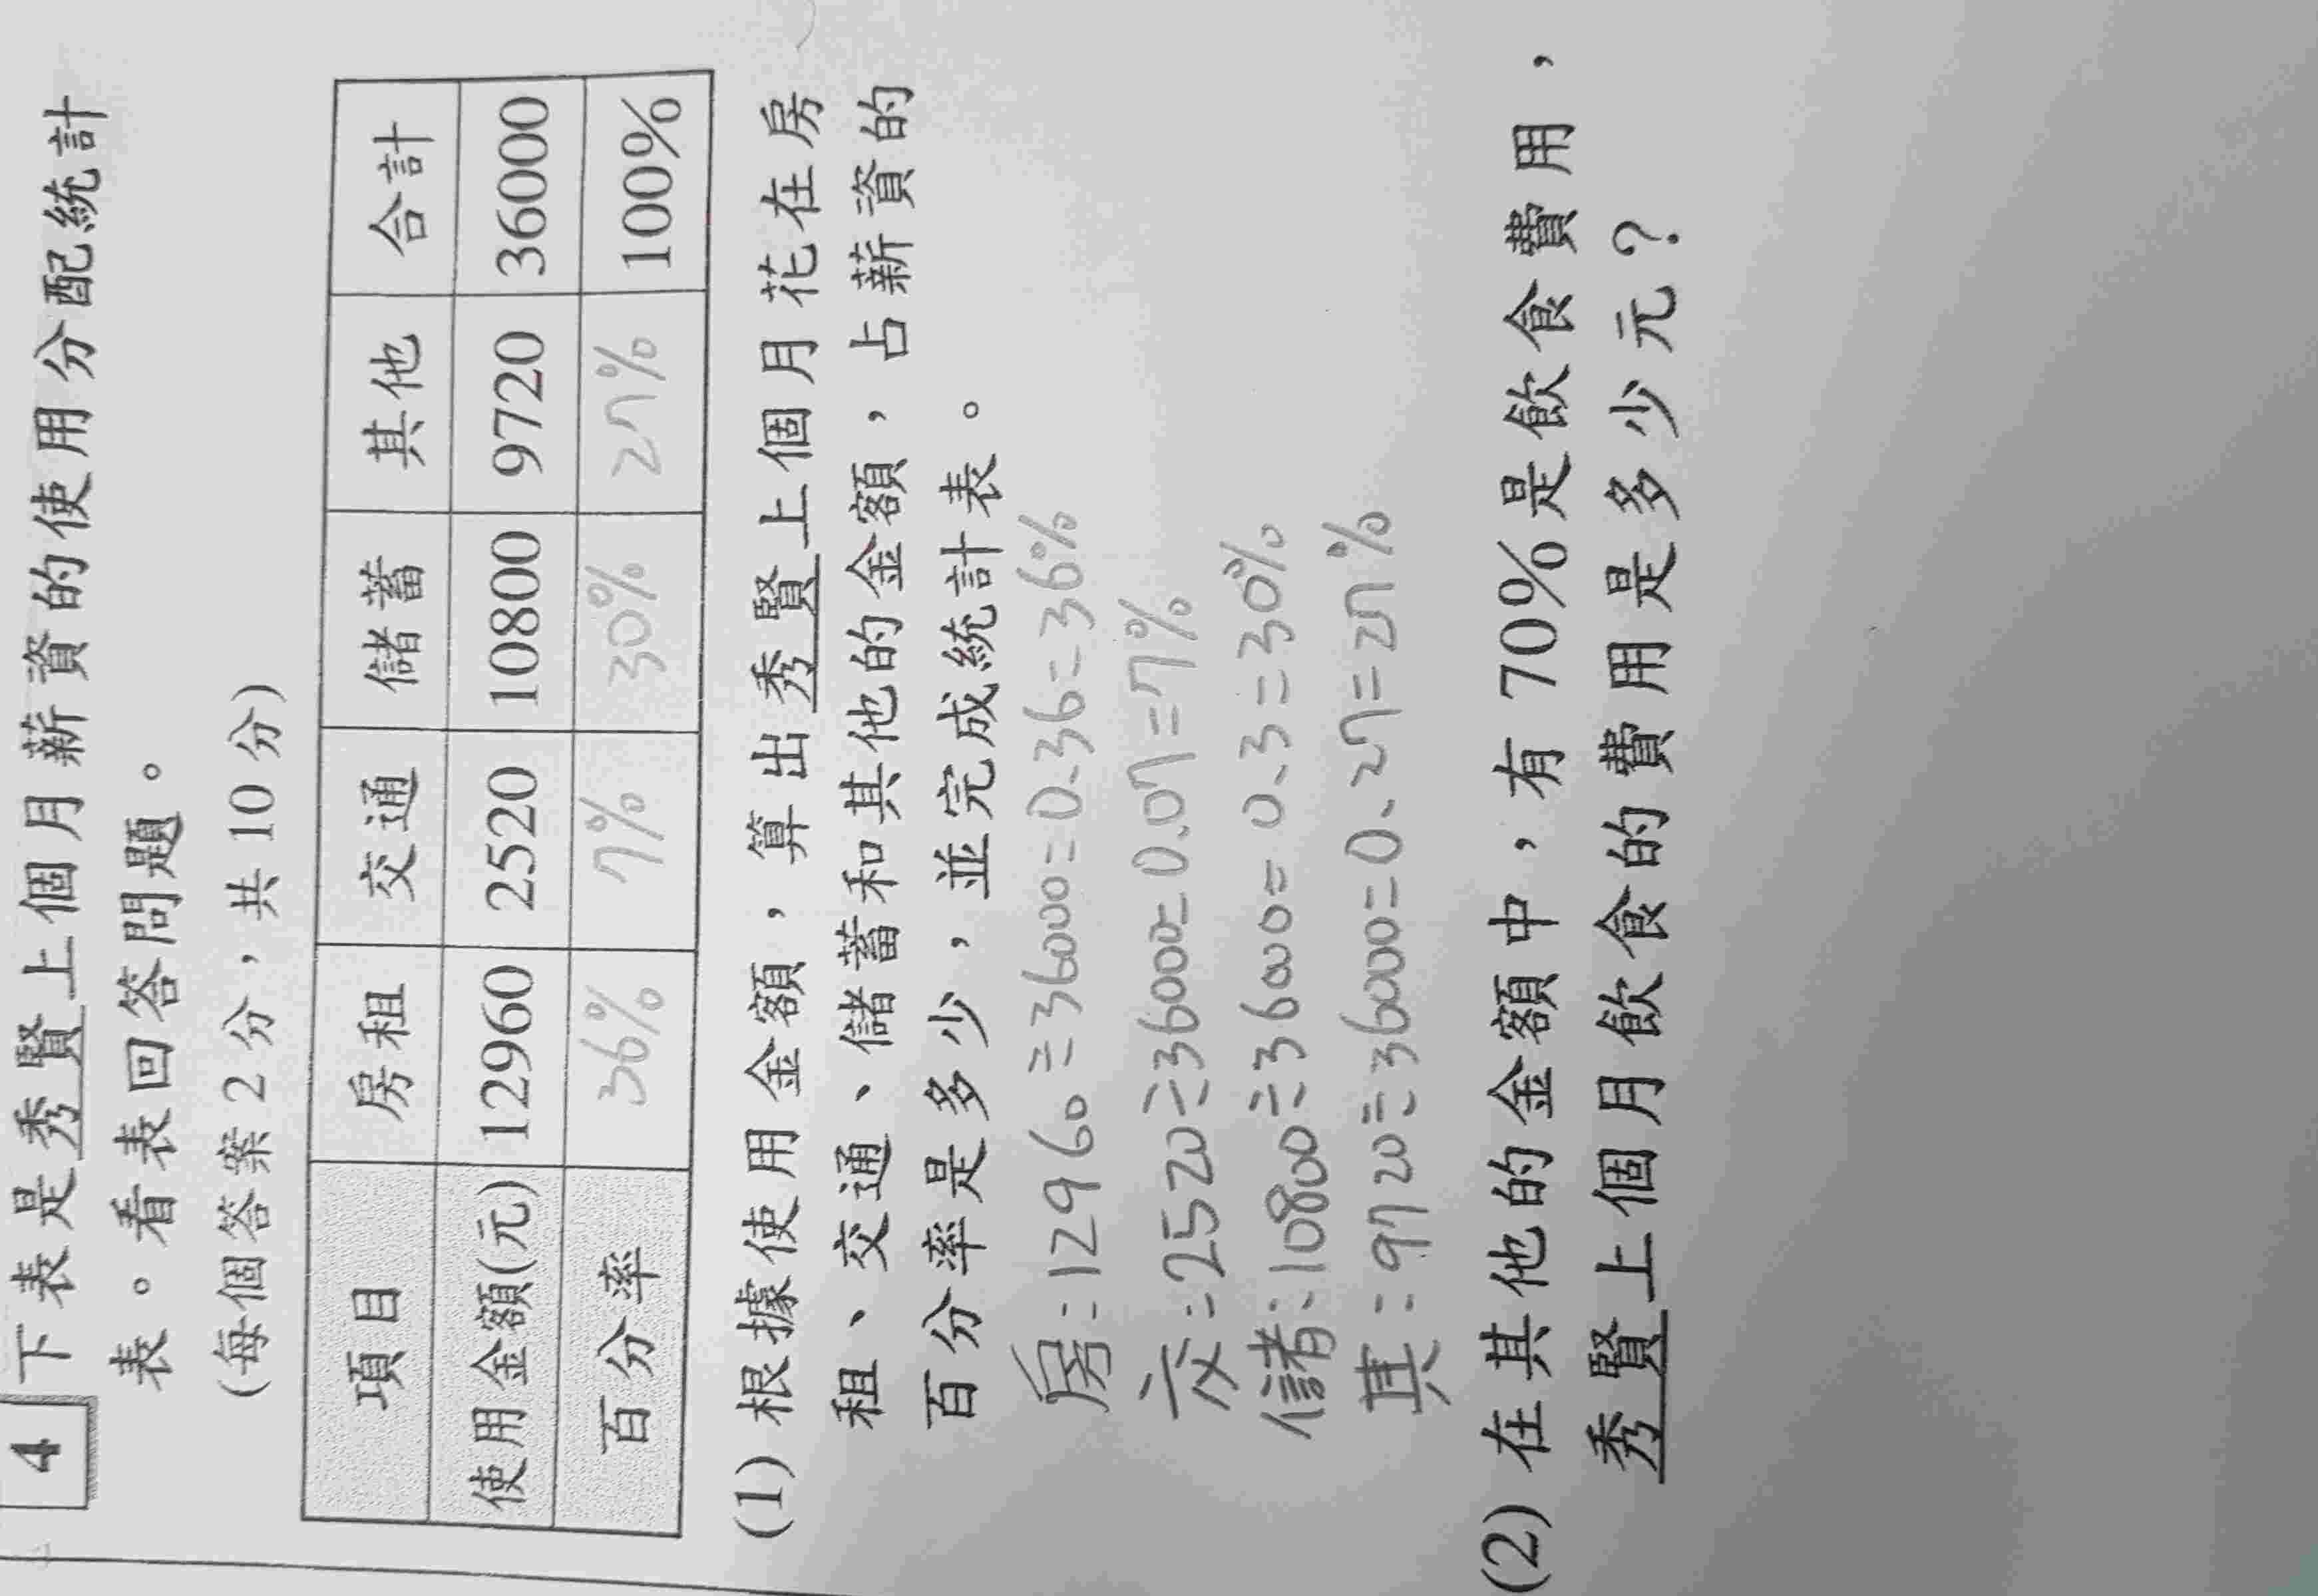 4 下表是秀賢上個月薪資的使用分配統計
表。看表回答問題。
(每個答案2分，共10分)
項目 房租 交通 儲蓄 其他 合計
使用金額(元) 12960 2520 10800 9720 36000
百分率 36% 7% 30% 27% 100%
(1) 根據使用金額，算出秀賢上個月花在房
租、交通、儲蓄和其他的金額，占薪資的
百分率是多少，並完成統計表。
房：12960÷36000=0.36=36%
交：2520÷36000=0.07=7%
儲：10800÷36000=0.3=30%
其：9720÷36000=0.27=27%
(2) 在其他的金額中，有70%是飲食費用，
秀賢上個月飲食的費用是多少元？